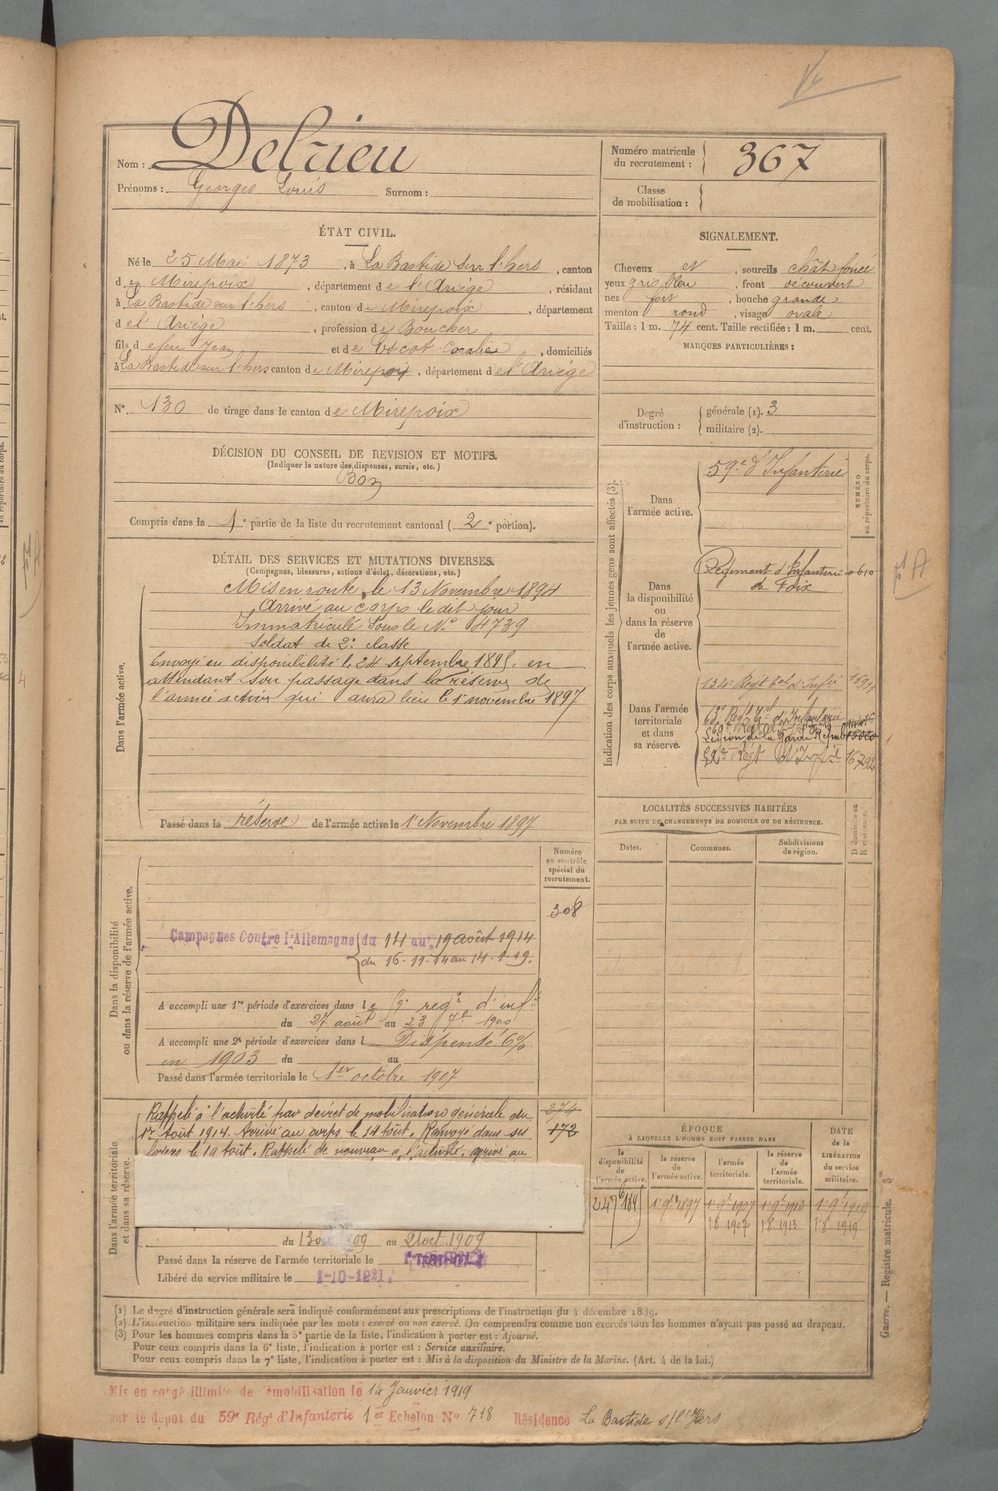 Nom : Delrieu
Prénoms : Georges Louis Surnom :
Numéro matricule du recrutement : 367
Classe de mobilisation :
ÉTAT CIVIL.
Né le 25 Mai 1873, à La Bastide sur l'hers, canton
de Mirepoix, département de l'Ariège, résidant
à La Bastide sur l'hers, canton de Mirepoix, département
d el' Ariège, profession de Boucher
fils d efeu Jean et de Escot Coralie, domiciliés
à La Bastide sur l'hers canton de Mirepoix, département de l'Ariège
N° 130 de tirage dans le canton de Mirepoix
SIGNALEMENT.
Cheveux et, sourcils chât foncé
yeux gris bleu, front découvert
nez fort, bouche grande
menton rond, visage ovale
Taille : 1 m. 74 cent. Taille rectifiée : 1 m. cent.
MARQUES PARTICULIÈRES :
Degré d'instruction : générale (1). 3
militaire (2).
DÉCISION DU CONSEIL DE REVISION ET MOTIFS.
(Indiquer la nature des dispenses, sursis, etc.)
Bon
Compris dans la 1e partie de la liste du recrutement cantonal (2e portion).
DÉTAIL DES SERVICES ET MUTATIONS DIVERSES.
(Campagnes, blessures, actions d'éclat, décorations, etc.)
Dans l'armée active.
Mis en route le 13 Novembre 1894
Arrivé au corps le dit jour
Immatriculé sous le N° 4739
Soldat de 2e classe
Envoyé en disponibilité le 24 septembre 1895, en
attendant son passage dans la réserve de
l'armée active qui aura lieu le 1r novembre 1897
Passé dans la réserve de l'armée active le 1r Novembre 1897
Indication des corps auxquels les jeunes gens sont affectés (3).
NUMÉRO au répertoire du corps.
Dans l'armée active.
59e d'Infanterie
Dans la disponibilité ou dans la réserve de l'armée active.
Régiment d'Infanterie de Foix
610
Dans l'armée territoriale et dans sa réserve.
134e Régt
Légion de la Garde Républ
LOCALITÉS SUCCESSIVES HABITÉES
PAR SUITE DE CHANGEMENTS DE DOMICILE OU DE RÉSIDENCE.
Dates. Communes. Subdivisions de région. D domicile ou R résidence.
Dans la disponibilité ou dans la réserve de l'armée active.
Numéro au contrôle spécial du recrutement.
308
Campagnes Contre l'Allemagne du 14 au 19 août 1914
du 16-11-14 au 14-1-19.
A accompli une 1re période d'exercices dans le 59e regt d'inf
du 27 août au 23 7bre 1900
A accompli une 2e période d'exercices dans l Dispensé 6%
en 1903 du au
Passé dans l'armée territoriale le 1er octobre 1907
Dans l'armée territoriale et dans sa réserve.
Rappelé à l'activité par décret de mobilisation générale du
1er Août 1914. Arrivé au corps le 14 Août. Renvoyé dans ses
foyers le 19 Août. Rappelé de nouveau à l'activité, arrivé au
274
172
du au 2 Oct. 1909
Passé dans la réserve de l'armée territoriale le
Libéré du service militaire le 1-10-1921.
ÉPOQUE
À LAQUELLE L'HOMME DOIT PASSER DANS
la disponibilité de l'armée active.
la réserve de l'armée active.
l'armée territoriale.
la réserve de l'armée territoriale.
DATE de la LIBÉRATION du service militaire.
Guerre. — Registre matricule.
(1) Le degré d'instruction générale sera indiqué conformément aux prescriptions de l'instruction du 4 décembre 1889.
(2) L'instruction militaire sera indiquée par les mots : exercé ou non exercé. On comprendra comme non exercés tous les hommes n'ayant pas passé au drapeau.
(3) Pour les hommes compris dans la 5e partie de la liste, l'indication à porter est : Ajourné.
Pour ceux compris dans la 6e liste, l'indication à porter est : Service auxiliaire.
Pour ceux compris dans la 7e liste, l'indication à porter est : Mis à la disposition du Ministre de la Marine. (Art. 4 de la loi.)
Mis en congé illimité de démobilisation le 14 Janvier 1919
par le dépôt du 59e Rég' d'Infanterie 1er Echelon N° 718 Résidence La Bastide s/l'Hers